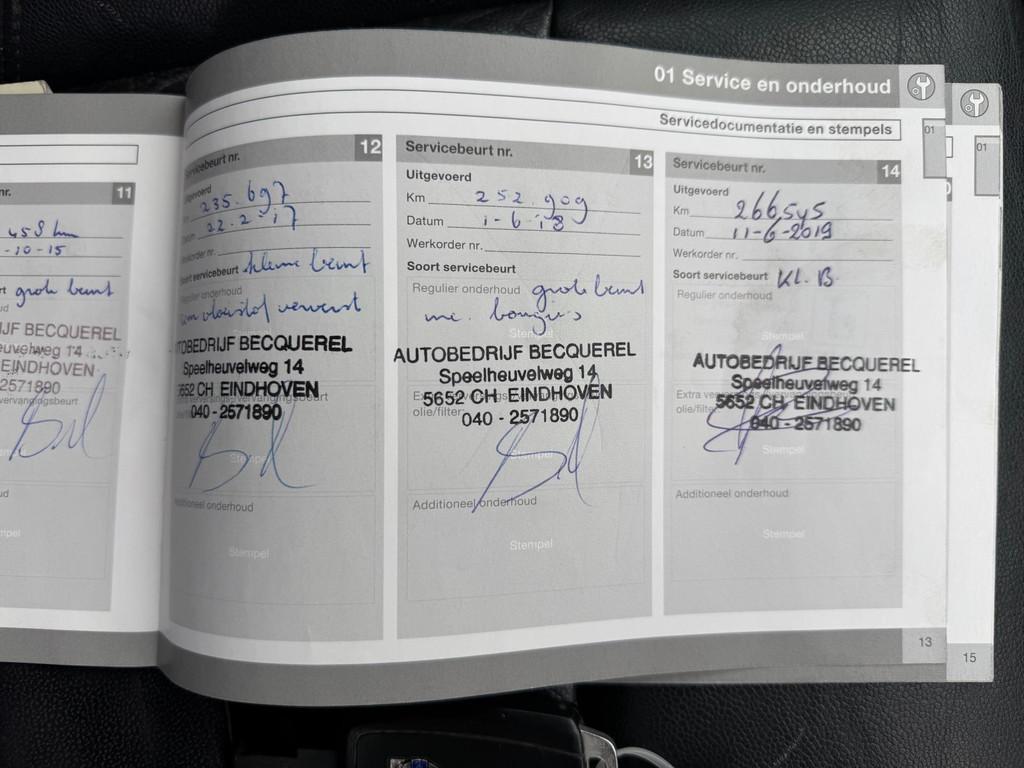 01 Service en onderhoud
Servicedocumentatie en stempels
01
01
nr. 11
458 km
-10-15
grote beurt
JF BECQUEREL
euvelweg 14
EINDHOVEN
2571890
vervangingsbeurt
ud
mpel
Servicebeurt nr. 12
Uitgevoerd
Km 235.697
Datum 22.2.17
Werkorder nr.
Soort servicebeurt kleine beurt
Regulier onderhoud
remvloeistof ververst
Stempel
AUTOBEDRIJF BECQUEREL
Speelheuvelweg 14
5652 CH EINDHOVEN
040 - 2571890
Stempel
Additioneel onderhoud
Stempel
Servicebeurt nr. 13
Uitgevoerd
Km 252.909
Datum 1-6-18
Werkorder nr.
Soort servicebeurt
Regulier onderhoud grote beurt
inc. bougies
Stempel
AUTOBEDRIJF BECQUEREL
Speelheuvelweg 14
5652 CH EINDHOVEN
olie/filter
040 - 2571890
Additioneel onderhoud
Stempel
Servicebeurt nr. 14
Uitgevoerd
Km 266545
Datum 11-6-2019
Werkorder nr.
Soort servicebeurt KL.B.
Regulier onderhoud
Stempel
AUTOBEDRIJF BECQUEREL
Speelheuvelweg 14
Extra
5652 CH EINDHOVEN
olie/filter
040 - 2571890
Stempel
Additioneel onderhoud
Stempel
13
15